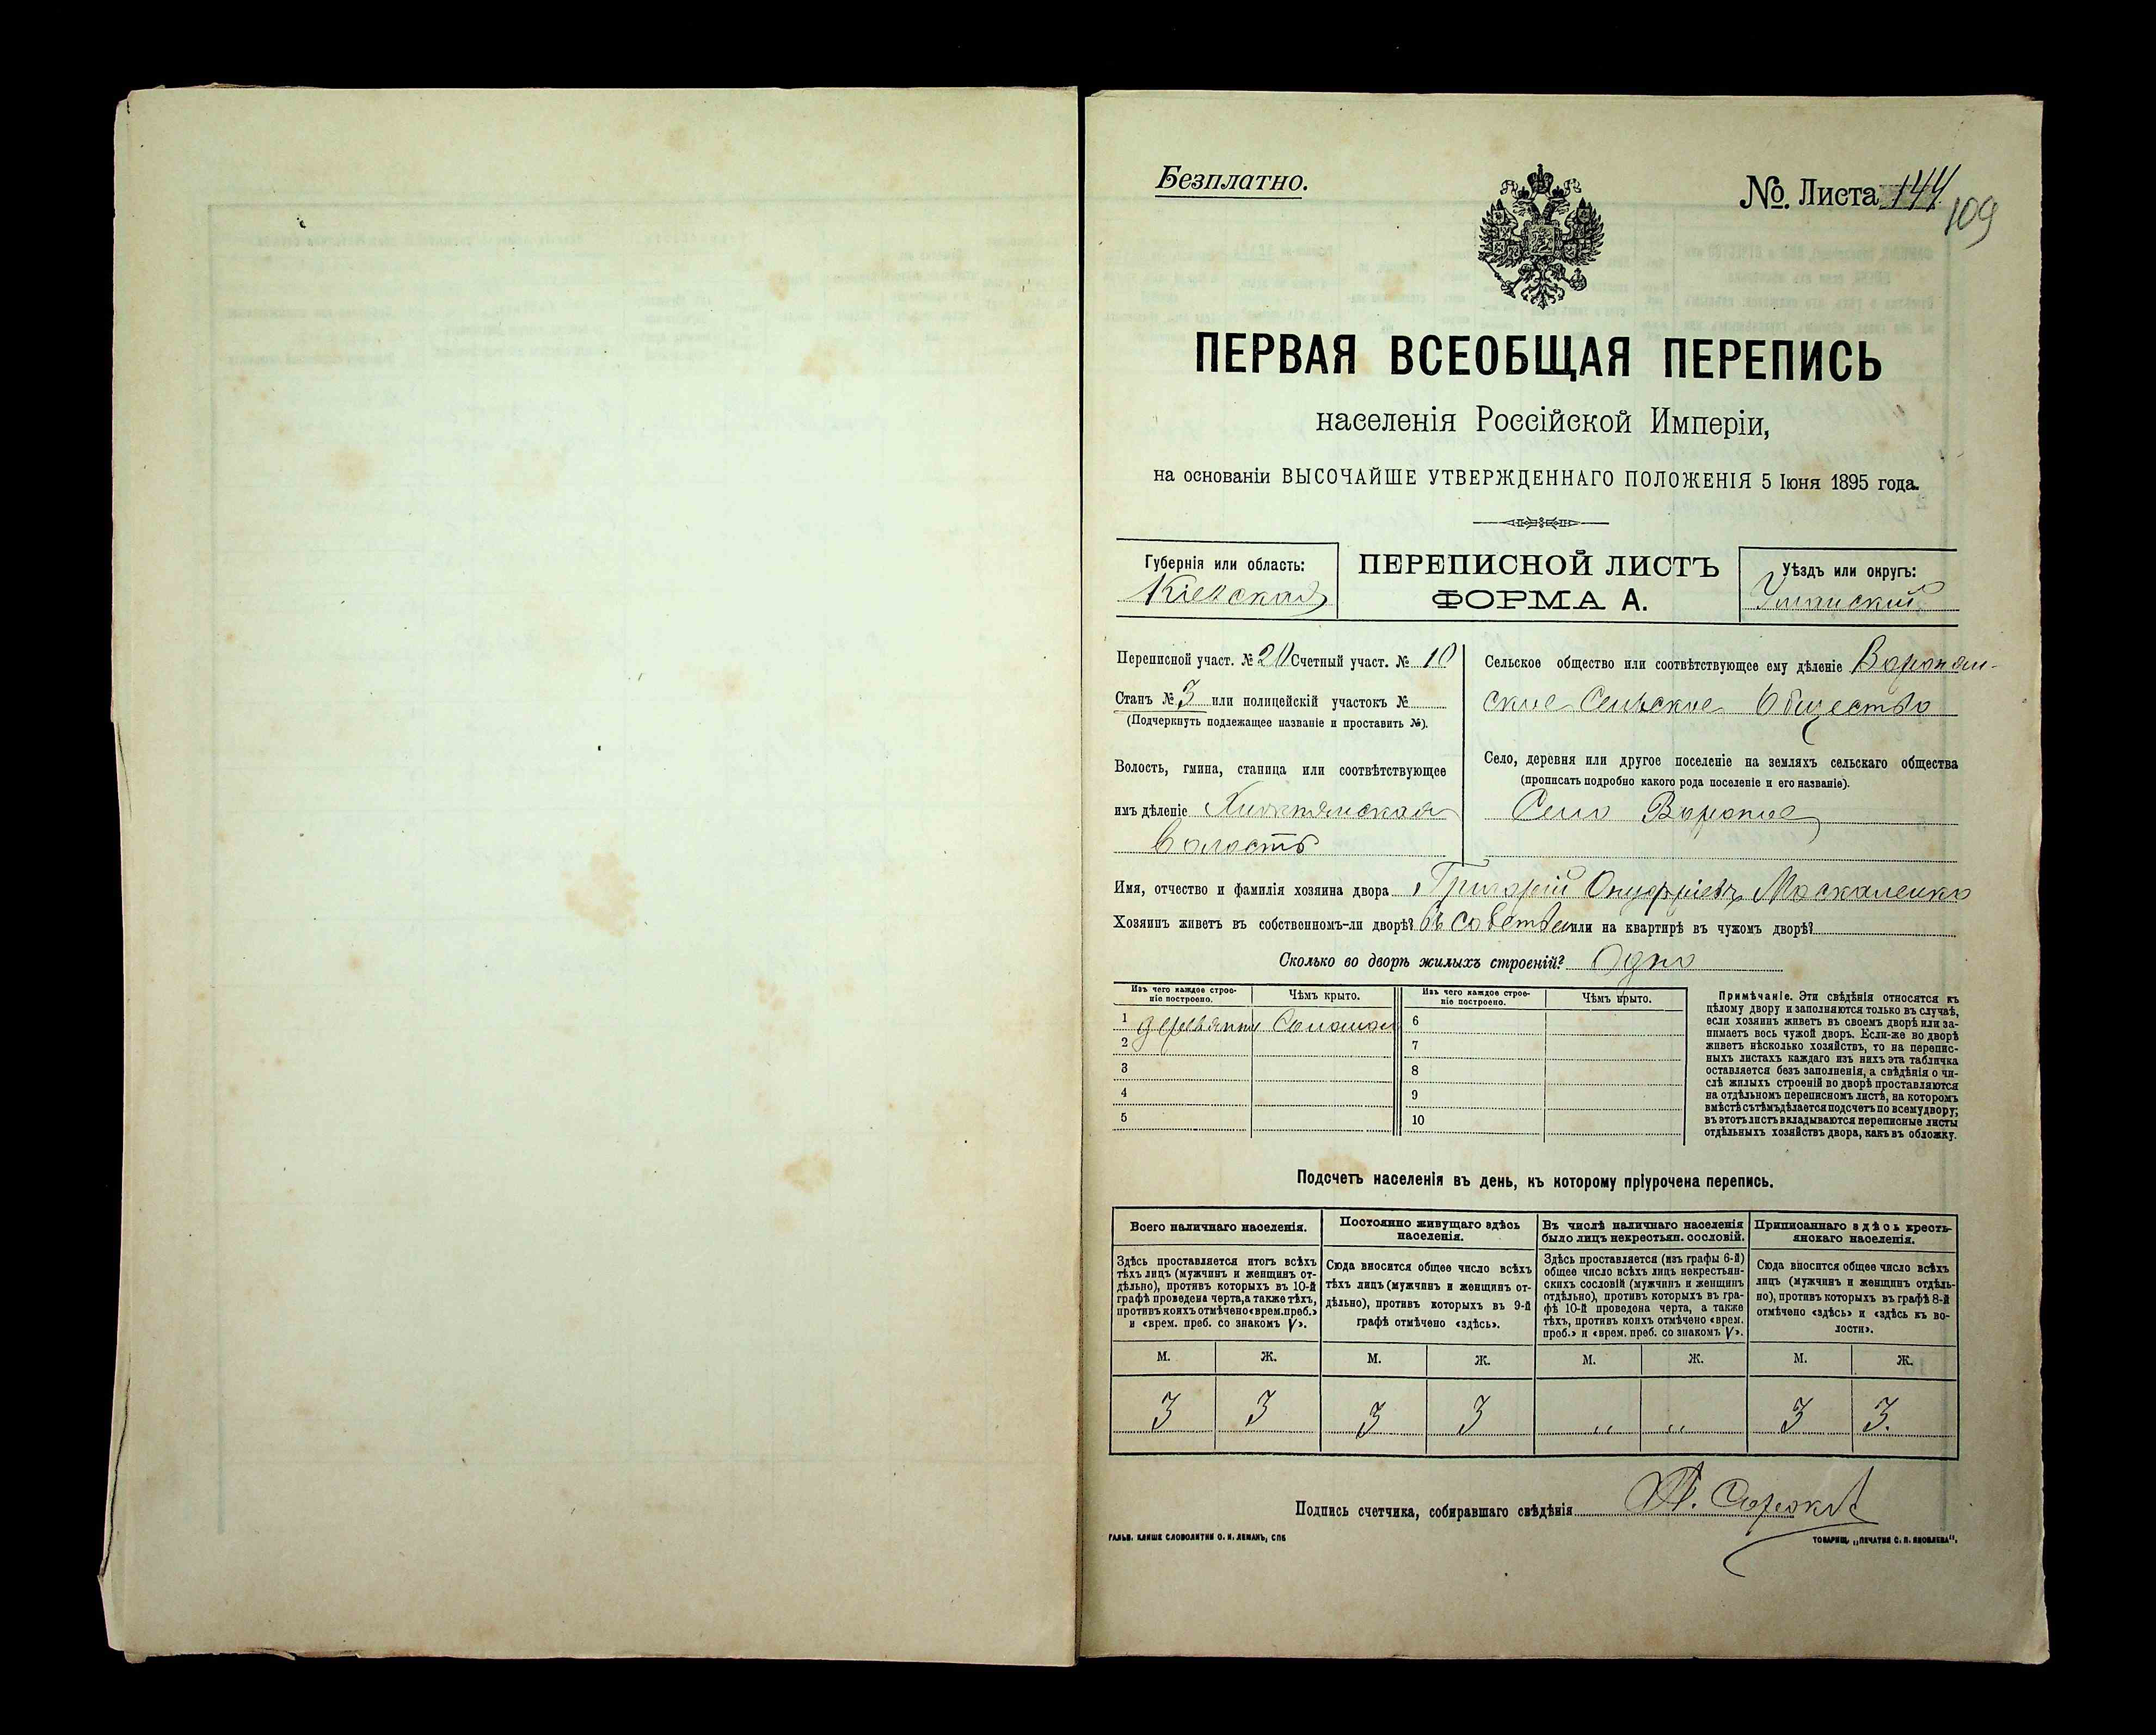 Безплатно.
№ Листа 144
109
ПЕРВАЯ ВСЕОБЩАЯ ПЕРЕПИСЬ
населенія Россійской Имперіи,
на основаніи ВЫСОЧАЙШЕ УТВЕРЖДЕННАГО ПОЛОЖЕНІЯ 5 Іюня 1895 года.
Губернія или область:
Кіевская
ПЕРЕПИСНОЙ ЛИСТЪ
ФОРМА А.
Уѣздъ или округъ:
Уманский
Переписной участ. № 20 Счетный участ. № 10
Станъ № 3 или полицейскій участокъ №
(Подчеркнуть подлежащее названіе и проставить №).
Волость, гмина, станица или соотвѣтствующее
имъ дѣленіе
Волость
Сельское общество или соотвѣтствующее ему дѣленіе Варопян-
ское Сельское Общество
Село, деревня или другое поселеніе на земляхъ сельскаго общества
(прописать подробно какого рода поселеніе и его названіе).
Село Вороное
Имя, отчество и фамилія хозяина двора Григорій Онуфріевъ Москаленко
Хозяинъ живетъ въ собственномъ-ли дворѣ? въ собствен или на квартирѣ въ чужомъ дворѣ?
Сколько во дворѣ жилыхъ строеній? Одно
Изъ чего каждое строе-
ніе построено.
Чѣмъ крыто.
Изъ чего каждое строе-
ніе построено.
Чѣмъ крыто.
1 деревянное Соломой
6
2
7
3
8
4
9
5
10
Примѣчаніе. Эти свѣдѣнія относятся къ
цѣлому двору и заполняются только въ случаѣ,
если хозяинъ живетъ въ своемъ дворѣ или за-
нимаетъ весь чужой дворъ. Если-же во дворѣ
живетъ нѣсколько хозяйствъ, то на перепис-
ныхъ листахъ каждаго изъ нихъ эта табличка
оставляется безъ заполненія, а свѣдѣнія о чи-
слѣ жилыхъ строеній во дворѣ проставляются
на отдѣльномъ переписномъ листѣ, на которомъ
вмѣстѣ съ тѣмъ дѣлается подсчетъ по всему двору;
въ этотъ листъ вкладываются переписные листы
отдѣльныхъ хозяйствъ двора, какъ въ обложку.
Подсчетъ населенія въ день, къ которому пріурочена перепись.
Всего наличнаго населенія.
Здѣсь проставляется итогъ всѣхъ
тѣхъ лицъ (мужчинъ и женщинъ от-
дѣльно), противъ которыхъ въ 10-й
графѣ проведена черта, а также тѣхъ,
противъ коихъ отмѣчено «врем. преб.»
и «врем. преб. со знакомъ V».
Постоянно живущаго здѣсь
населенія.
Сюда вносится общее число всѣхъ
тѣхъ лицъ (мужчинъ и женщинъ от-
дѣльно), противъ которыхъ въ 9-й
графѣ отмѣчено «здѣсь».
Въ числѣ наличнаго населенія
было лицъ некрестьян. сословій.
Здѣсь проставляется (изъ графы 6-й)
общее число всѣхъ лицъ некрестьян-
скихъ сословій (мужчинъ и женщинъ
отдѣльно), противъ которыхъ въ гра-
фѣ 10-й проведена черта, а также
тѣхъ, противъ коихъ отмѣчено «врем.
преб.» и «врем. преб. со знакомъ V».
Приписаннаго здѣсь кресть-
янскаго населенія.
Сюда вносится общее число всѣхъ
лицъ (мужчинъ и женщинъ отдѣль-
но), противъ которыхъ въ графѣ 8-й
отмѣчено «здѣсь» и «здѣсь къ во-
лости».
М. Ж. М. Ж. М. Ж. М. Ж.
3 3 3 3 „ „ 3 3.
Подпись счетчика, собиравшаго свѣдѣнія
ГАЛЬВ. КЛИШЕ СЛОВОЛИТНИ О. И. ЛЕМАНЪ, СПБ
ТОВАРИЩ. „ПЕЧАТНЯ С. П. ЯКОВЛЕВА".